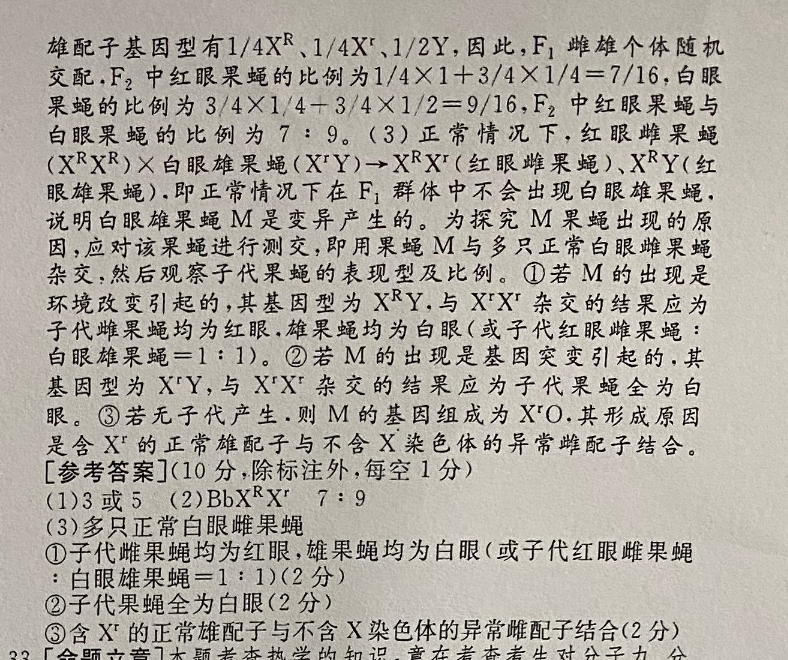 雄配子基因型有1/4Xᴿ、1/4Xʳ、1/2Y,因此,F₁ 雌雄个体随机
交配,F₂ 中红眼果蝇的比例为1/4×1+3/4×1/4=7/16,白眼
果蝇的比例为 3/4×1/4+3/4×1/2=9/16,F₂ 中红眼果蝇与
白眼果蝇的比例为 7∶9。(3)正常情况下,红眼雌果蝇
(XᴿXᴿ)×白眼雄果蝇(XʳY)→XᴿXʳ(红眼雌果蝇)、XᴿY(红
眼雄果蝇),即正常情况下在 F₁ 群体中不会出现白眼雄果蝇,
说明白眼雄果蝇 M 是变异产生的。为探究 M 果蝇出现的原
因,应对该果蝇进行测交,即用果蝇 M 与多只正常白眼雌果蝇
杂交,然后观察子代果蝇的表现型及比例。①若 M 的出现是
环境改变引起的,其基因型为 XᴿY,与 XʳXʳ 杂交的结果应为
子代雌果蝇均为红眼,雄果蝇均为白眼(或子代红眼雌果蝇∶
白眼雄果蝇=1∶1)。②若 M 的出现是基因突变引起的,其
基因型为 XʳY,与 XʳXʳ 杂交的结果应为子代果蝇全为白
眼。③若无子代产生,则 M 的基因组成为 XʳO,其形成原因
是含 Xʳ 的正常雄配子与不含 X 染色体的异常雌配子结合。
[参考答案](10 分,除标注外,每空 1 分)
(1)3 或 5 (2)BbXᴿXʳ 7∶9
(3)多只正常白眼雌果蝇
①子代雌果蝇均为红眼,雄果蝇均为白眼(或子代红眼雌果蝇
∶白眼雄果蝇=1∶1)(2 分)
②子代果蝇全为白眼(2 分)
③含 Xʳ 的正常雄配子与不含 X 染色体的异常雌配子结合(2 分)
33.[命题立意]本题考查热学的知识,意在考查考生对分子力、分